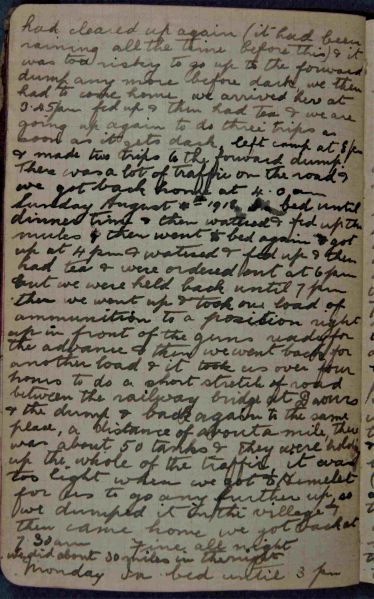 had cleared up again (it had been
raining all the time before this) & it
was too risky to go up to the forward
dump any more before dark we then
had to come home, we arrived here at
3.45pm fed up & then had tea & we are
going up again to do three trips as
soon as it gets dark, left camp at 8 pm
& made two trips to the forward dump
There was a lot of traffic on the road &
we got back home at 4.0 am
Sunday August 1918 bed until
dinner time & then watered & fed up the
mules & then went to bed again & got
up at 4 pm & watered & fed up & then
had tea & were ordered out at 6 pm
but we were held back until 7 pm
then we went up & took one load of
ammunition to a position right
up in front of the guns ready for
the advance & then we went back for
another load & it took us over four
hours to do a short stretch of road
between the railway bridge at Daours
& the dump & back again to the same
place, a distance of about a mile there
was about 50 tanks & they were holding
up the whole of the traffic it was
too light when we got to Hamelet
for us to go any further up, so
we dumped it in the village &
then came home we got back at
7.30am all night
we did about 30 miles in the night
Monday In bed until 3 pm